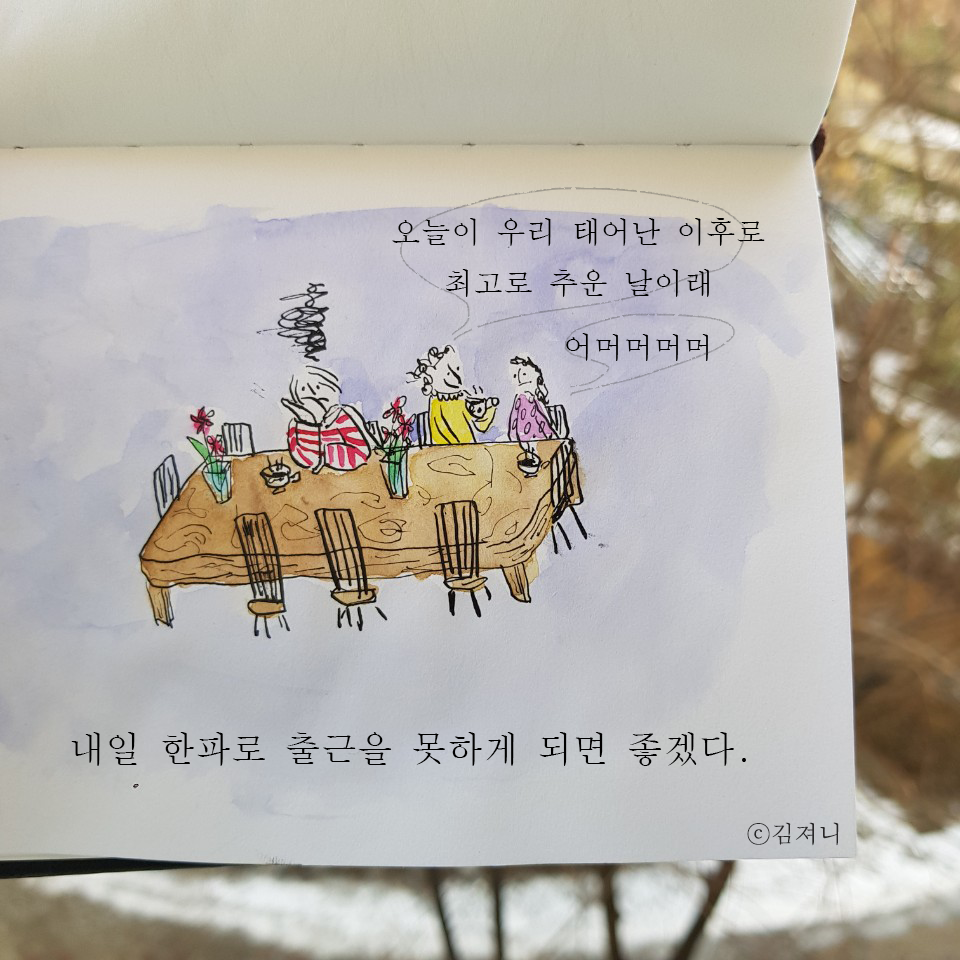 오늘이 우리 태어난 이후로
최고로 추운 날이래
어머머머머
내일 한파로 출근을 못하게 되면 좋겠다.
ⓒ김져니